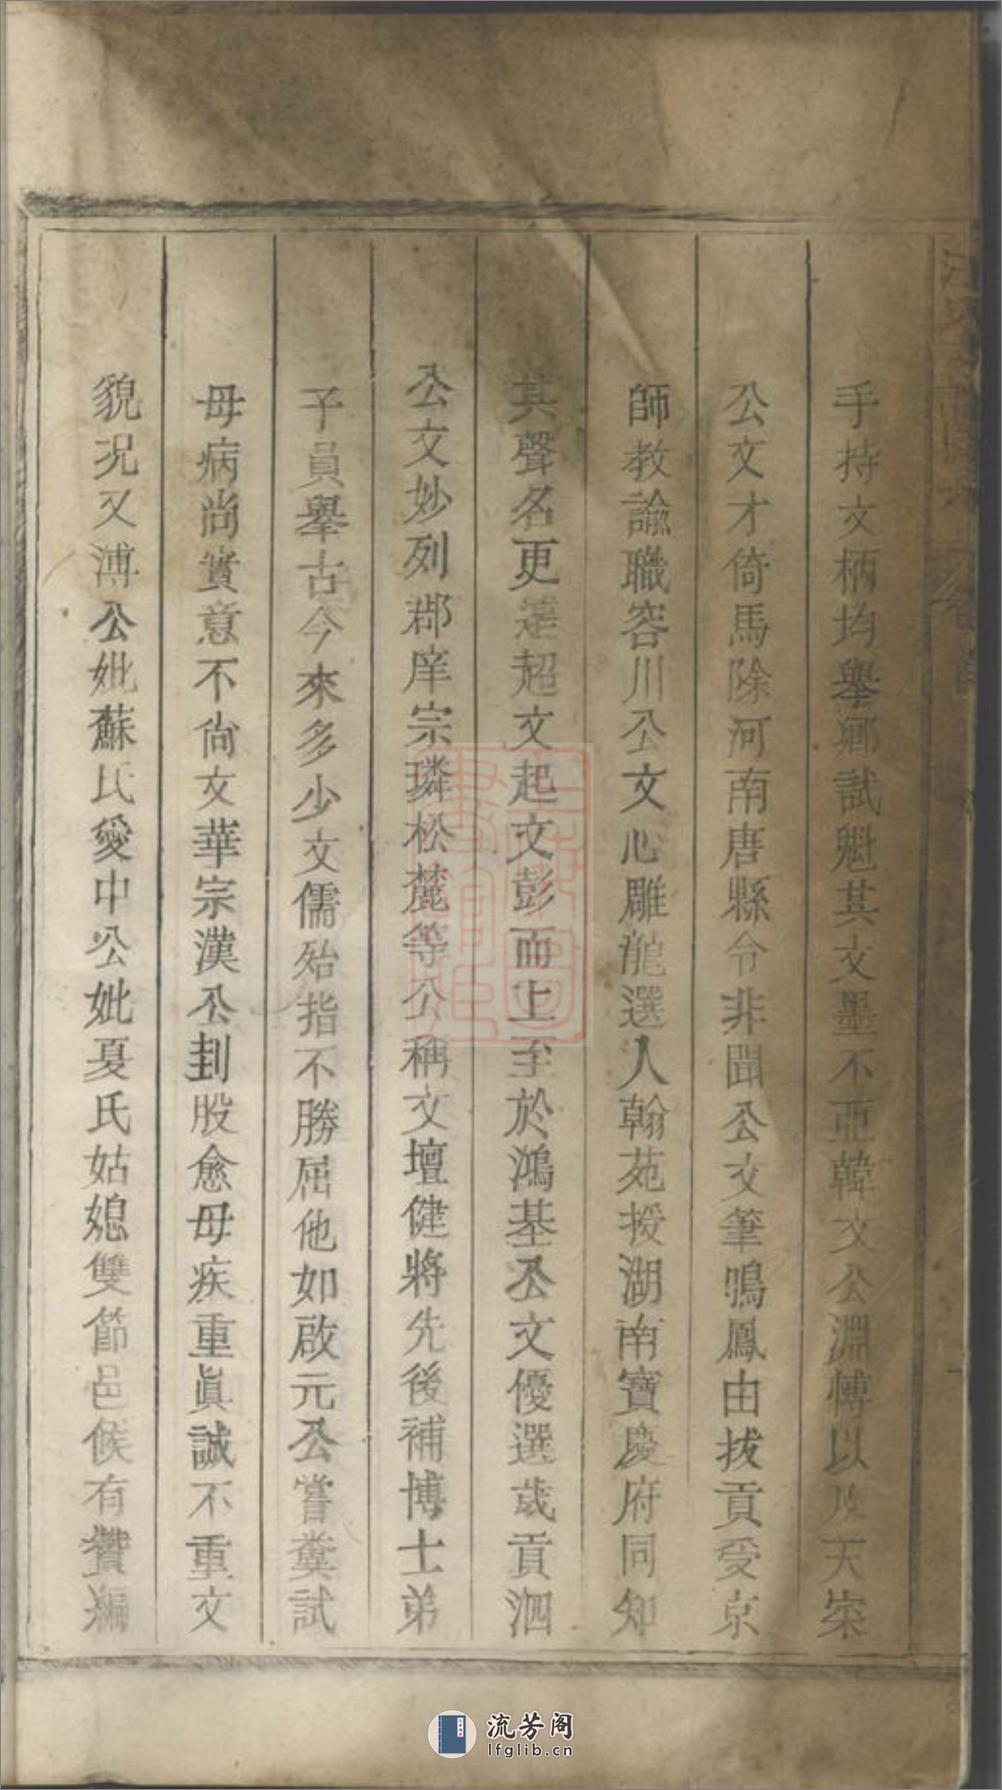 手持文柄均舉鄉試魁其文墨不亞韓文公淵博以及天宋
公文才倚馬除河南唐縣令非聞公文筆鳴鳳由拔貢受京
師教諭職容川公文心雕龍選入翰苑授湖南寶慶府同知
其聲名更遠超文起文彭而上至於鴻基公文優選歲貢泗
公文妙列郡庠宗璘松麓等公稱文壇健將先後補博士弟
子員舉古今來多少文儒殆指不勝屈他如啟元公嘗糞試
母病尚實意不尚文華宗漢公刲股愈母疾重眞誠不重文
貌况又溥公妣蘇氏愛中公妣夏氏姑媳雙節邑候有贊編
流芳阁
lfglib.cn